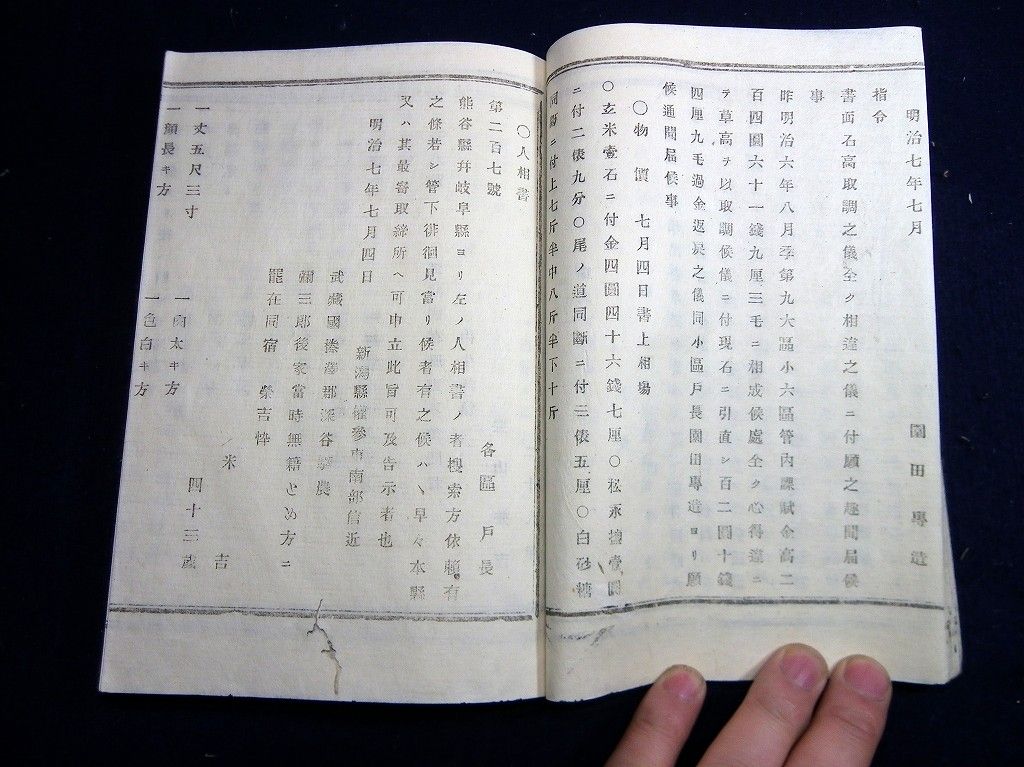 明治七年七月
園田專造
指令
書面石高取調之儀全ク相違之儀ニ付願之趣聞届候
事
昨明治六年八月季第九大區小六區管內課賦金高二
百四圓六十一錢九厘三毛ニ相成候處全ク心得違ニ
テ草高ヲ以取調候儀ニ付現石ニ引直シ百二圓十錢
四厘九毛過金返戾之儀同小區戶長園田專造ヨリ願
候通聞届候事
〇物價 七月四日書上相場
〇玄米壹石ニ付金四圓四十六錢七厘〇松永鹽壹圓
ニ付二俵九分〇尾ノ道同斷ニ付三俵五厘〇白砂糖
同斷ニ付上七斤半中八斤半下十斤
〇人相書
第二百七號
各區戶長
熊谷縣幷岐阜縣ヨリ左ノ人相書ノ者搜索方依賴有
之條若シ管下徘徊見當リ候者有之候ハヽ早々本縣
又ハ其最寄取締所ヘ可申立此旨可及告示者也
明治七年七月四日
新潟縣權參事南部信近
武藏國榛澤郡深谷驛農
彌三郎後家當時無籍とめ方ニ
罷在同宿 榮吉悴
米吉
四十三歲
一丈五尺三寸 一肉太キ方
一顏長キ方 一色白キ方